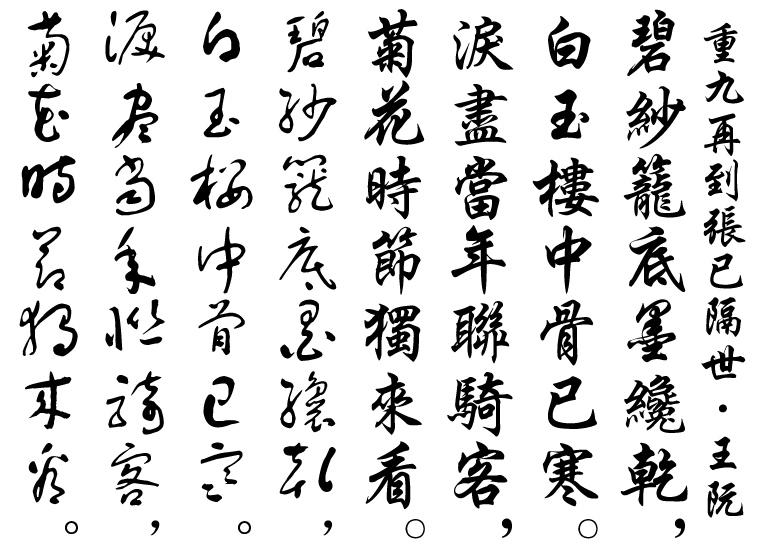 重九再到張已隔世・王阮
碧紗籠底墨纔乾，
白玉樓中骨已寒。
淚盡當年聯騎客，
菊花時節獨來看。
碧紗籠底墨纔乾，
白玉樓中骨已寒。
淚盡當年聯騎客，
菊花時節獨來看。